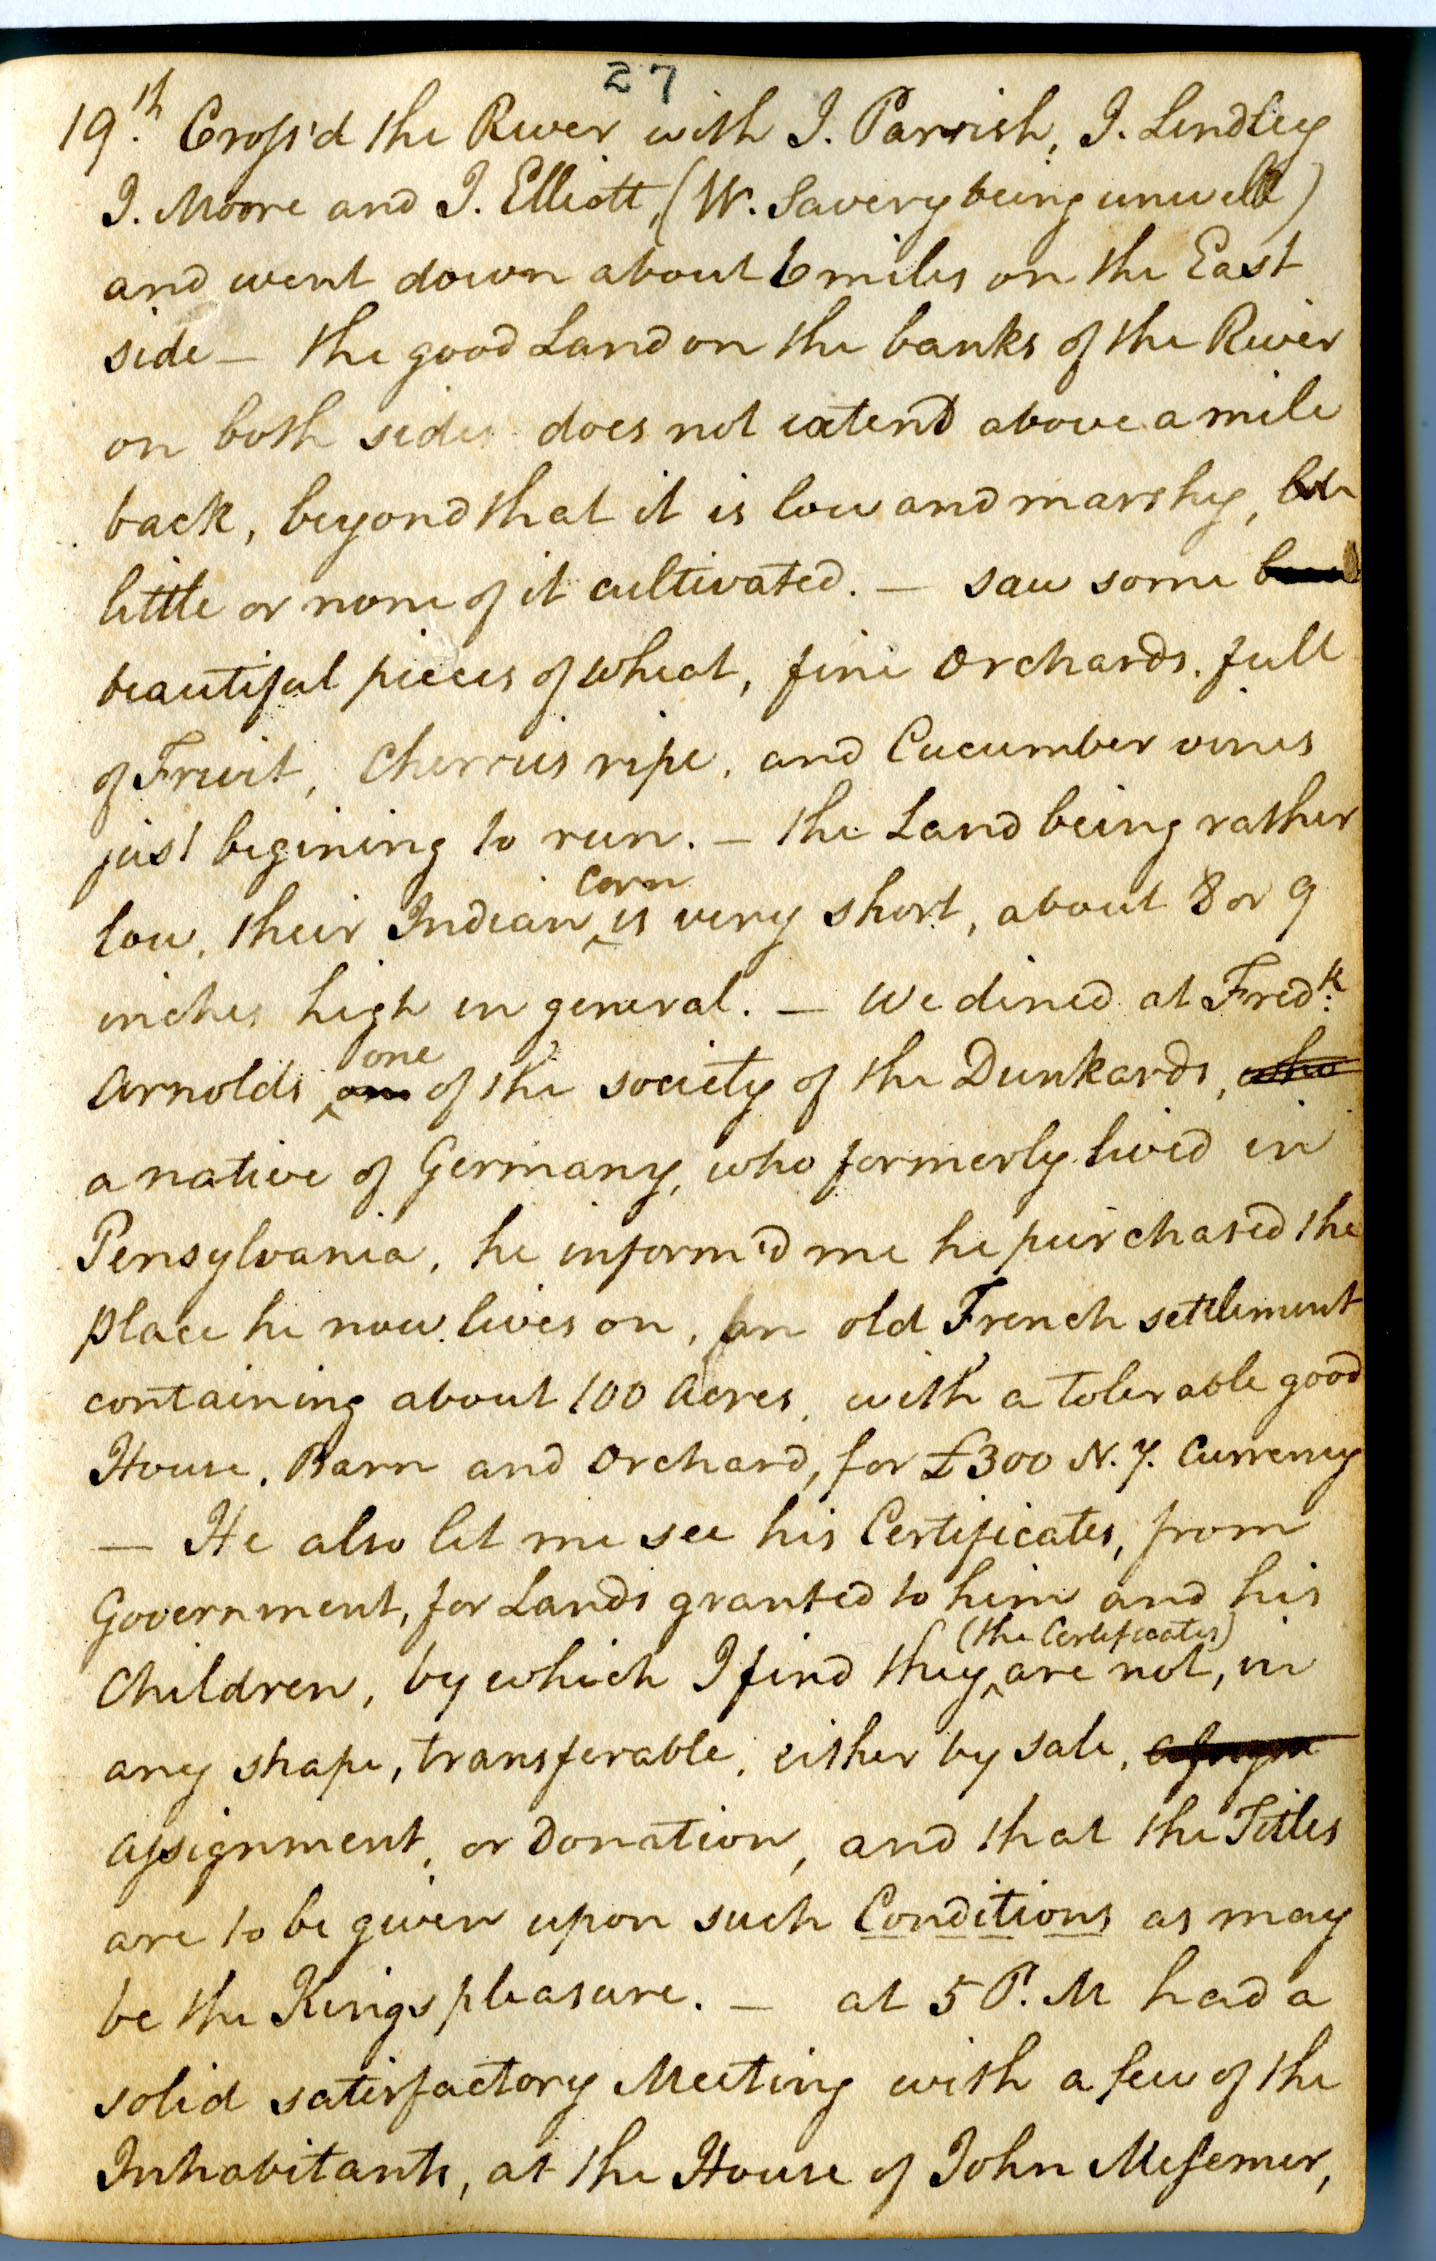 27
19.th Cross'd the River with J. Parrish, J. Lindley
J. Moore and J. Elliott, (W. Savery being unwell)
and went down about 6 miles on the East
side — the good Land on the banks of the River
on both sides does not extend above a mile
back, beyond that it is low and marshy, but
little or none of it cultivated. — saw some
beautiful pieces of wheat, fine Orchards full
of Fruit, Cherries ripe, and Cucumber vines
just begining to run. — the Land being rather
low, their Indian corn is very short, about 8 or 9
inches high in general. — We dined at Fredk.
Arnolds one of the society of the Dunkards, who
a native of Germany, who formerly lived in
Pensylvania, he inform'd me he purchased the
place he now lives on, an old French settlement
containing about 100 Acres, with a tolerable good
House, Barn and Orchard, for £300 N.Y. Currency
— He also let me see his Certificates, from
Government, for Lands granted to him and his
Children, by which I find they (the Certificates) are not, in
any shape, transferable, either by sale,
assignment, or Donation, and that the Titles
are to be given upon such Conditions as may
be the Kings pleasure. — at 5 P.M had a
solid satisfactory Meeting with a few of the
Inhabitants, at the House of John Messemer,